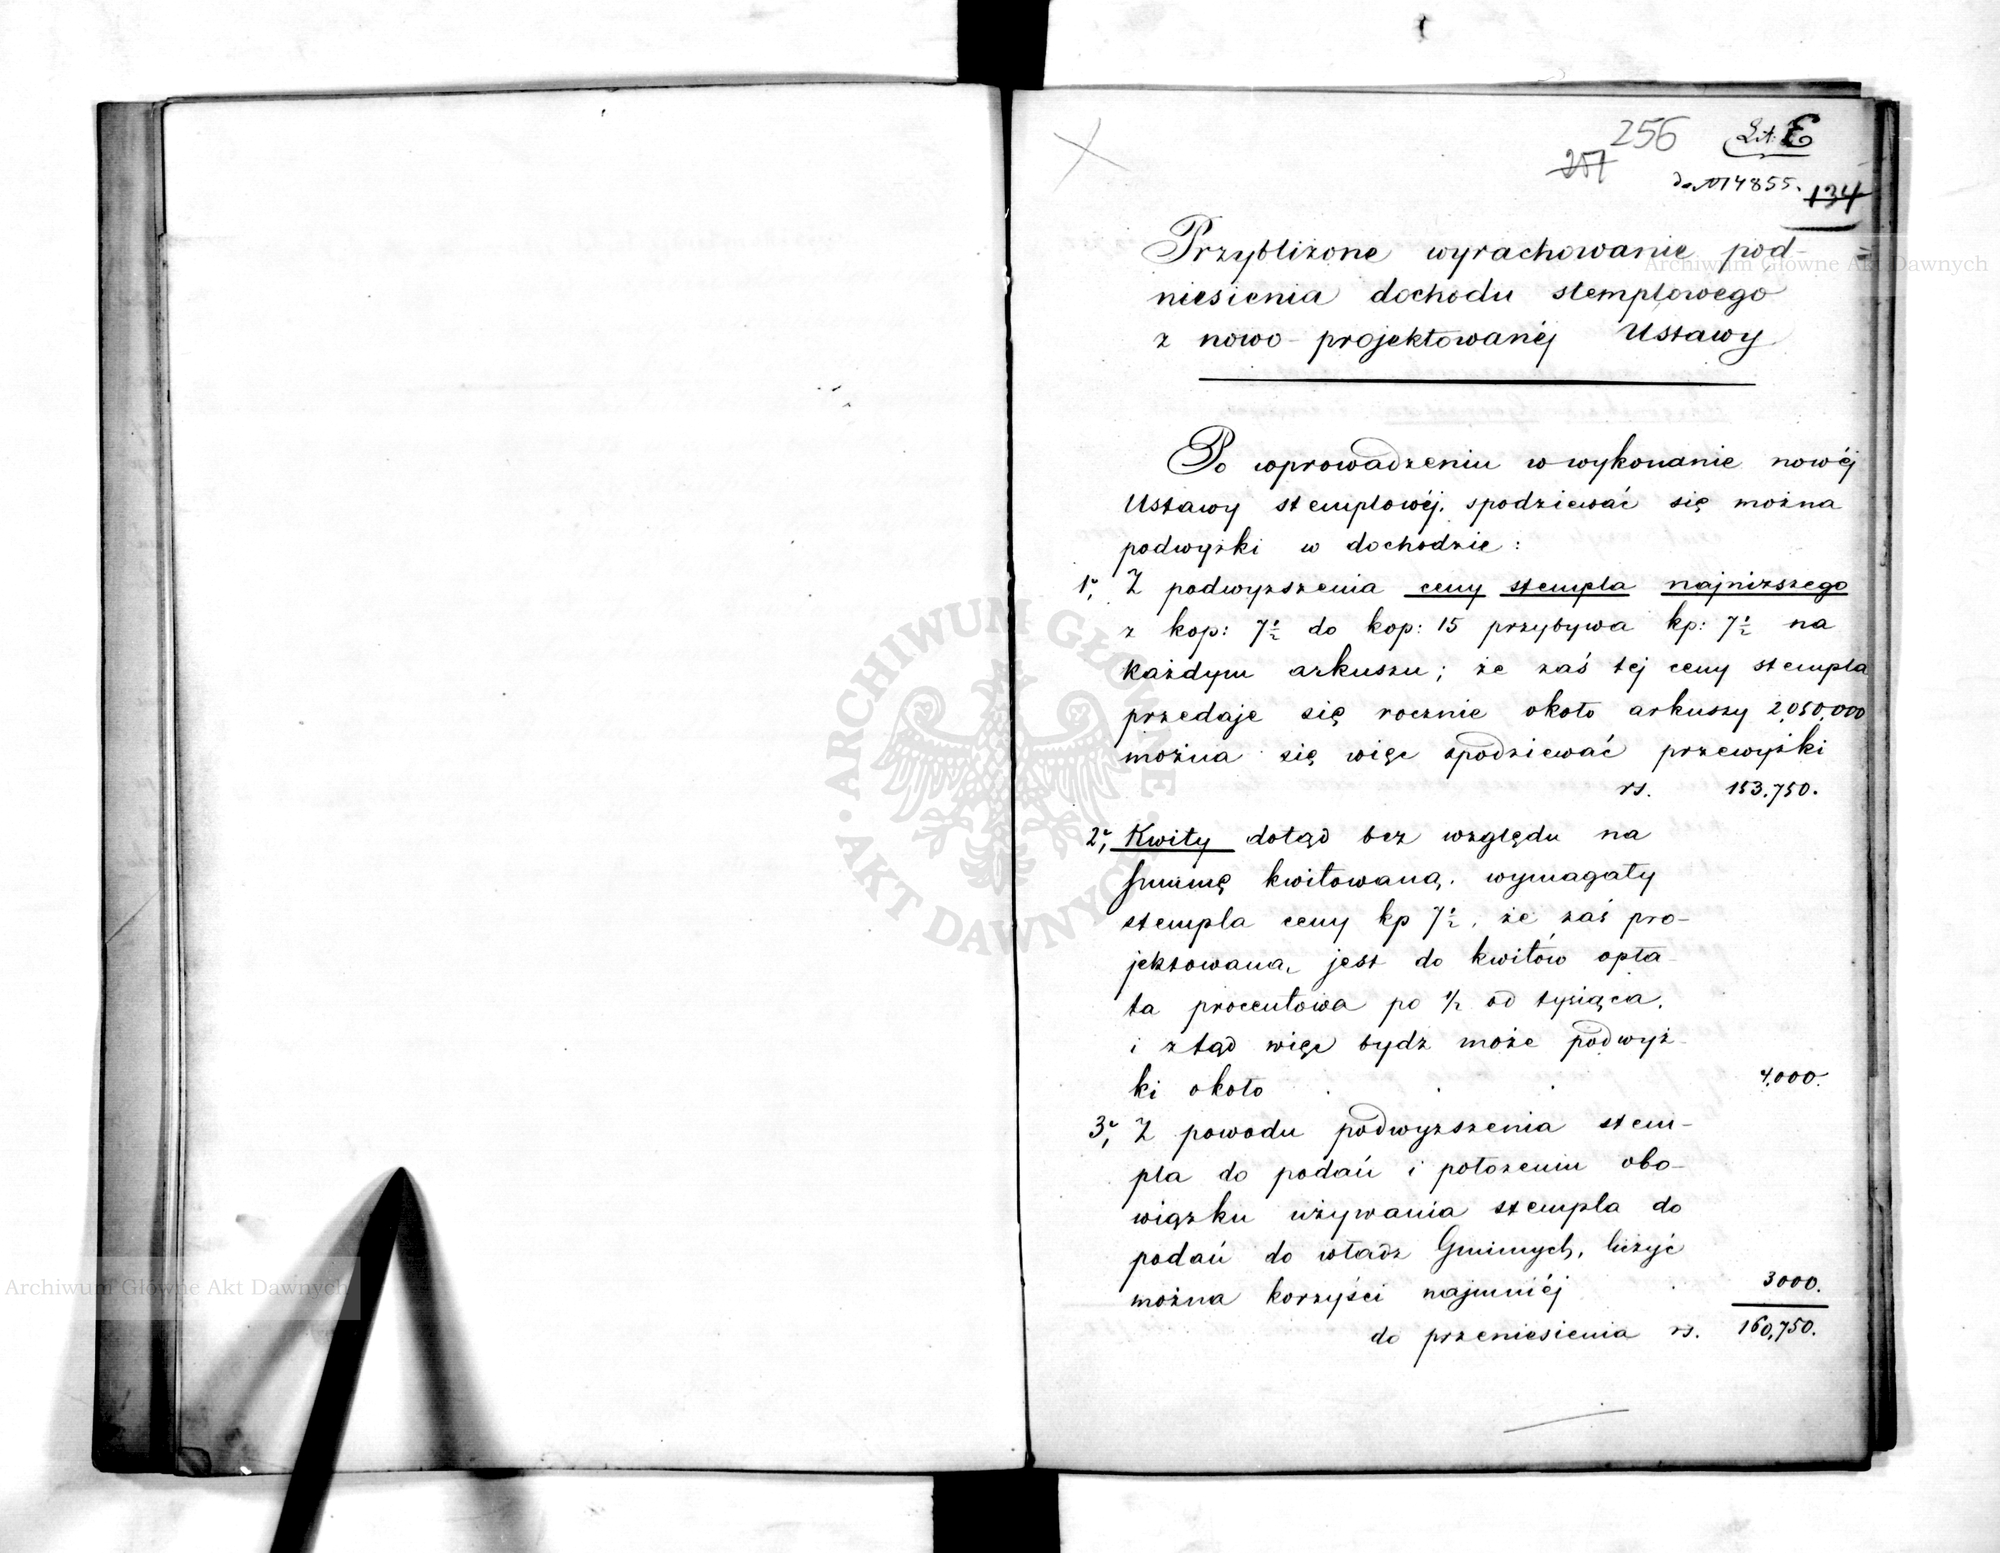 256
257
Lit. E
do N 14855.
134
Przybliżone wyrachowanie pod-
niesienia dochodu stemplowego
z nowo projektowanéj Ustawy
Po wprowadzeniu w wykonanie nowéj
Ustawy stemplowéj, spodziewać się można
podwyżki w dochodzie:
1, Z podwyższenia ceny stempla najniższego
z kop: 7½ do kop: 15 przybywa kp: 7½ na
każdym arkuszu; że zaś tej ceny stempla
przedaje się rocznie około arkuszy 2,050,000
można się więc spodziewać przewyżki
rs. 153,750.
2, Kwity dotąd bez względu na
summę kwitowaną, wymagały
stempla ceny kp 7½, że zaś pro-
jektowana, jest do kwitów opła-
ta procentowa po ½ od tysiąca,
i ztąd więc bydź może podwyż-
ki około . . . 4,000.
3, Z powodu podwyższenia stem-
pla do podań i położeniu obo-
wiązku używania stempla do
podań do władz Gminnych, liczyć
można korzyści najmniéj . 3000.
do przeniesienia rs. 160,750.
Archiwum Główne Akt Dawnych
ARCHIWUM GŁÓWNE AKT DAWNYCH
Archiwum Główne Akt Dawnych